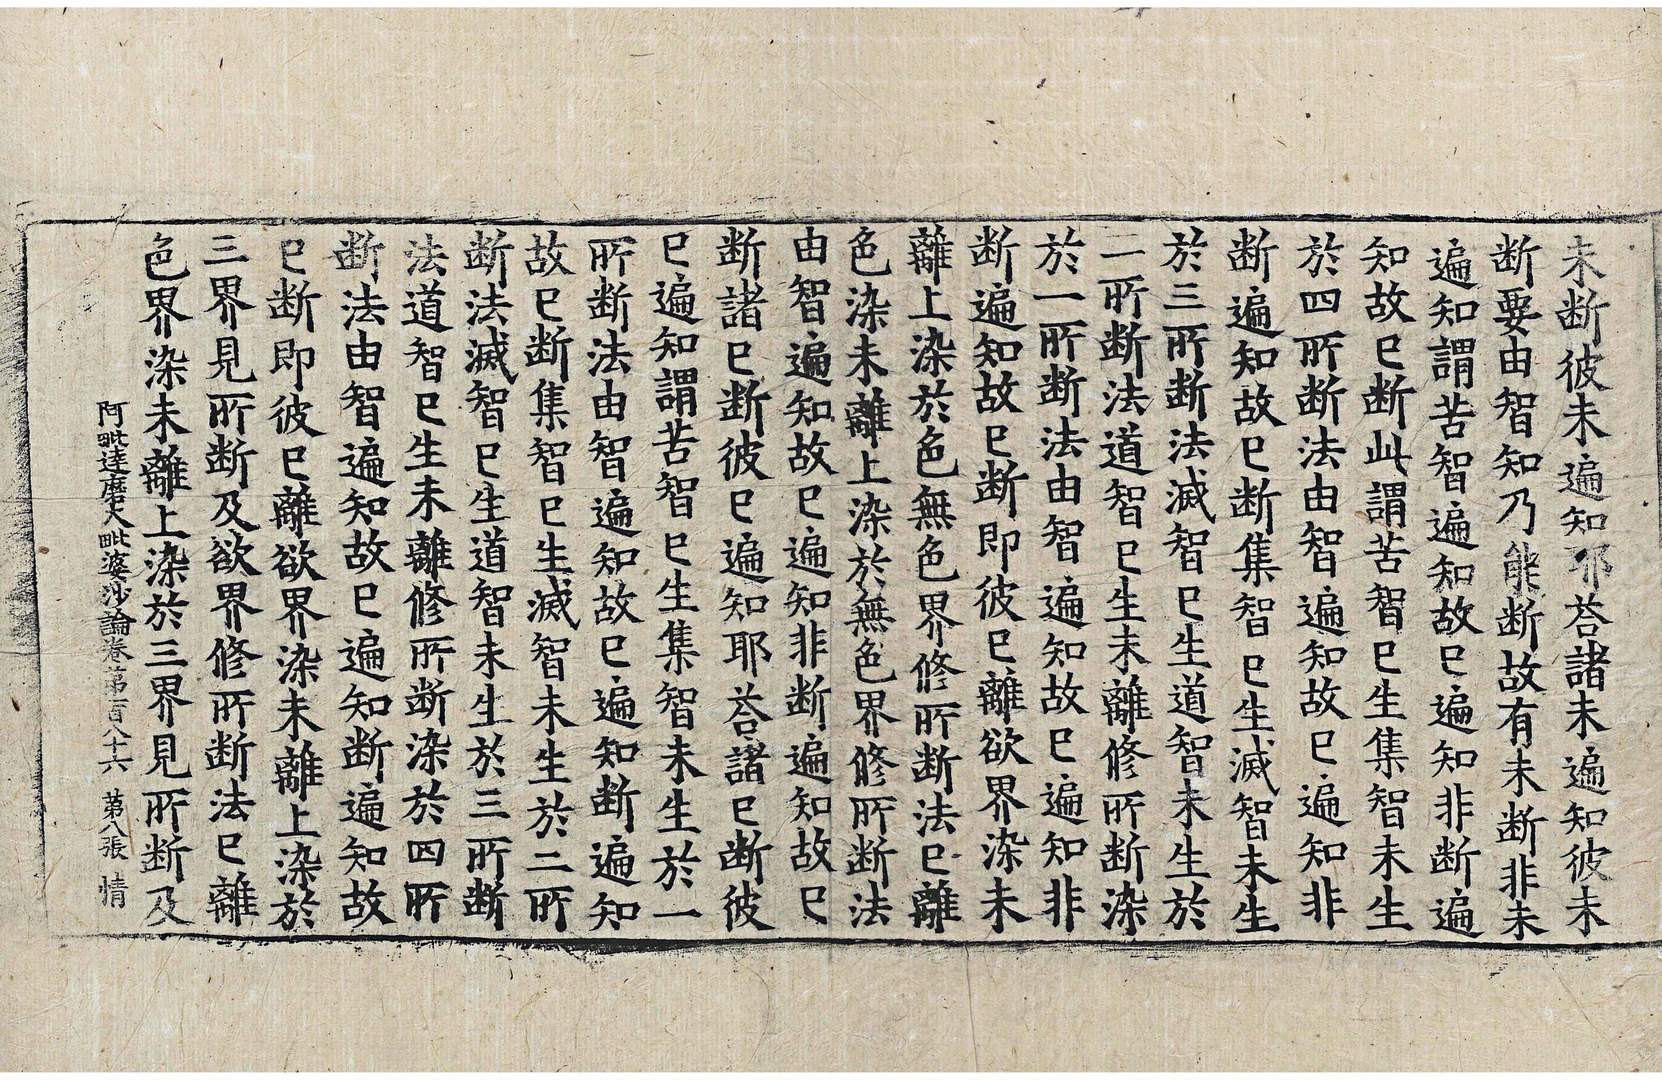 未断彼未遍知耶荅諸未遍知彼未
断要由智知乃能断故有未断非未
遍知謂苦智遍知故已遍知非断遍
知故已断此謂苦智已生集智未生
於四所断法由智遍知故已遍知非
断遍知故已断集智已生滅智未生
於三所断法滅智已生道智未生於
二所断法道智已生未離修所断染
於一所断法由智遍知故已遍知非
断遍知故已断即彼已離欲界染未
離上染於色無色界修所断法已離
色染未離上染於無色界修所断法
由智遍知故已遍知非断遍知故已
断諸已断彼已遍知耶荅諸已断彼
已遍知謂苦智已生集智未生於一
所断法由智遍知故已遍知断遍知
故已断集智已生滅智未生於二所
断法滅智已生道智未生於三所断
法道智已生未離修所断染於四所
断法由智遍知故已遍知断遍知故
已断即彼已離欲界染未離上染於
三界見所断及欲界修所断法已離
色界染未離上染於三界見所断及
阿毗達磨大毗婆沙論卷第一百八十六 第八張 情